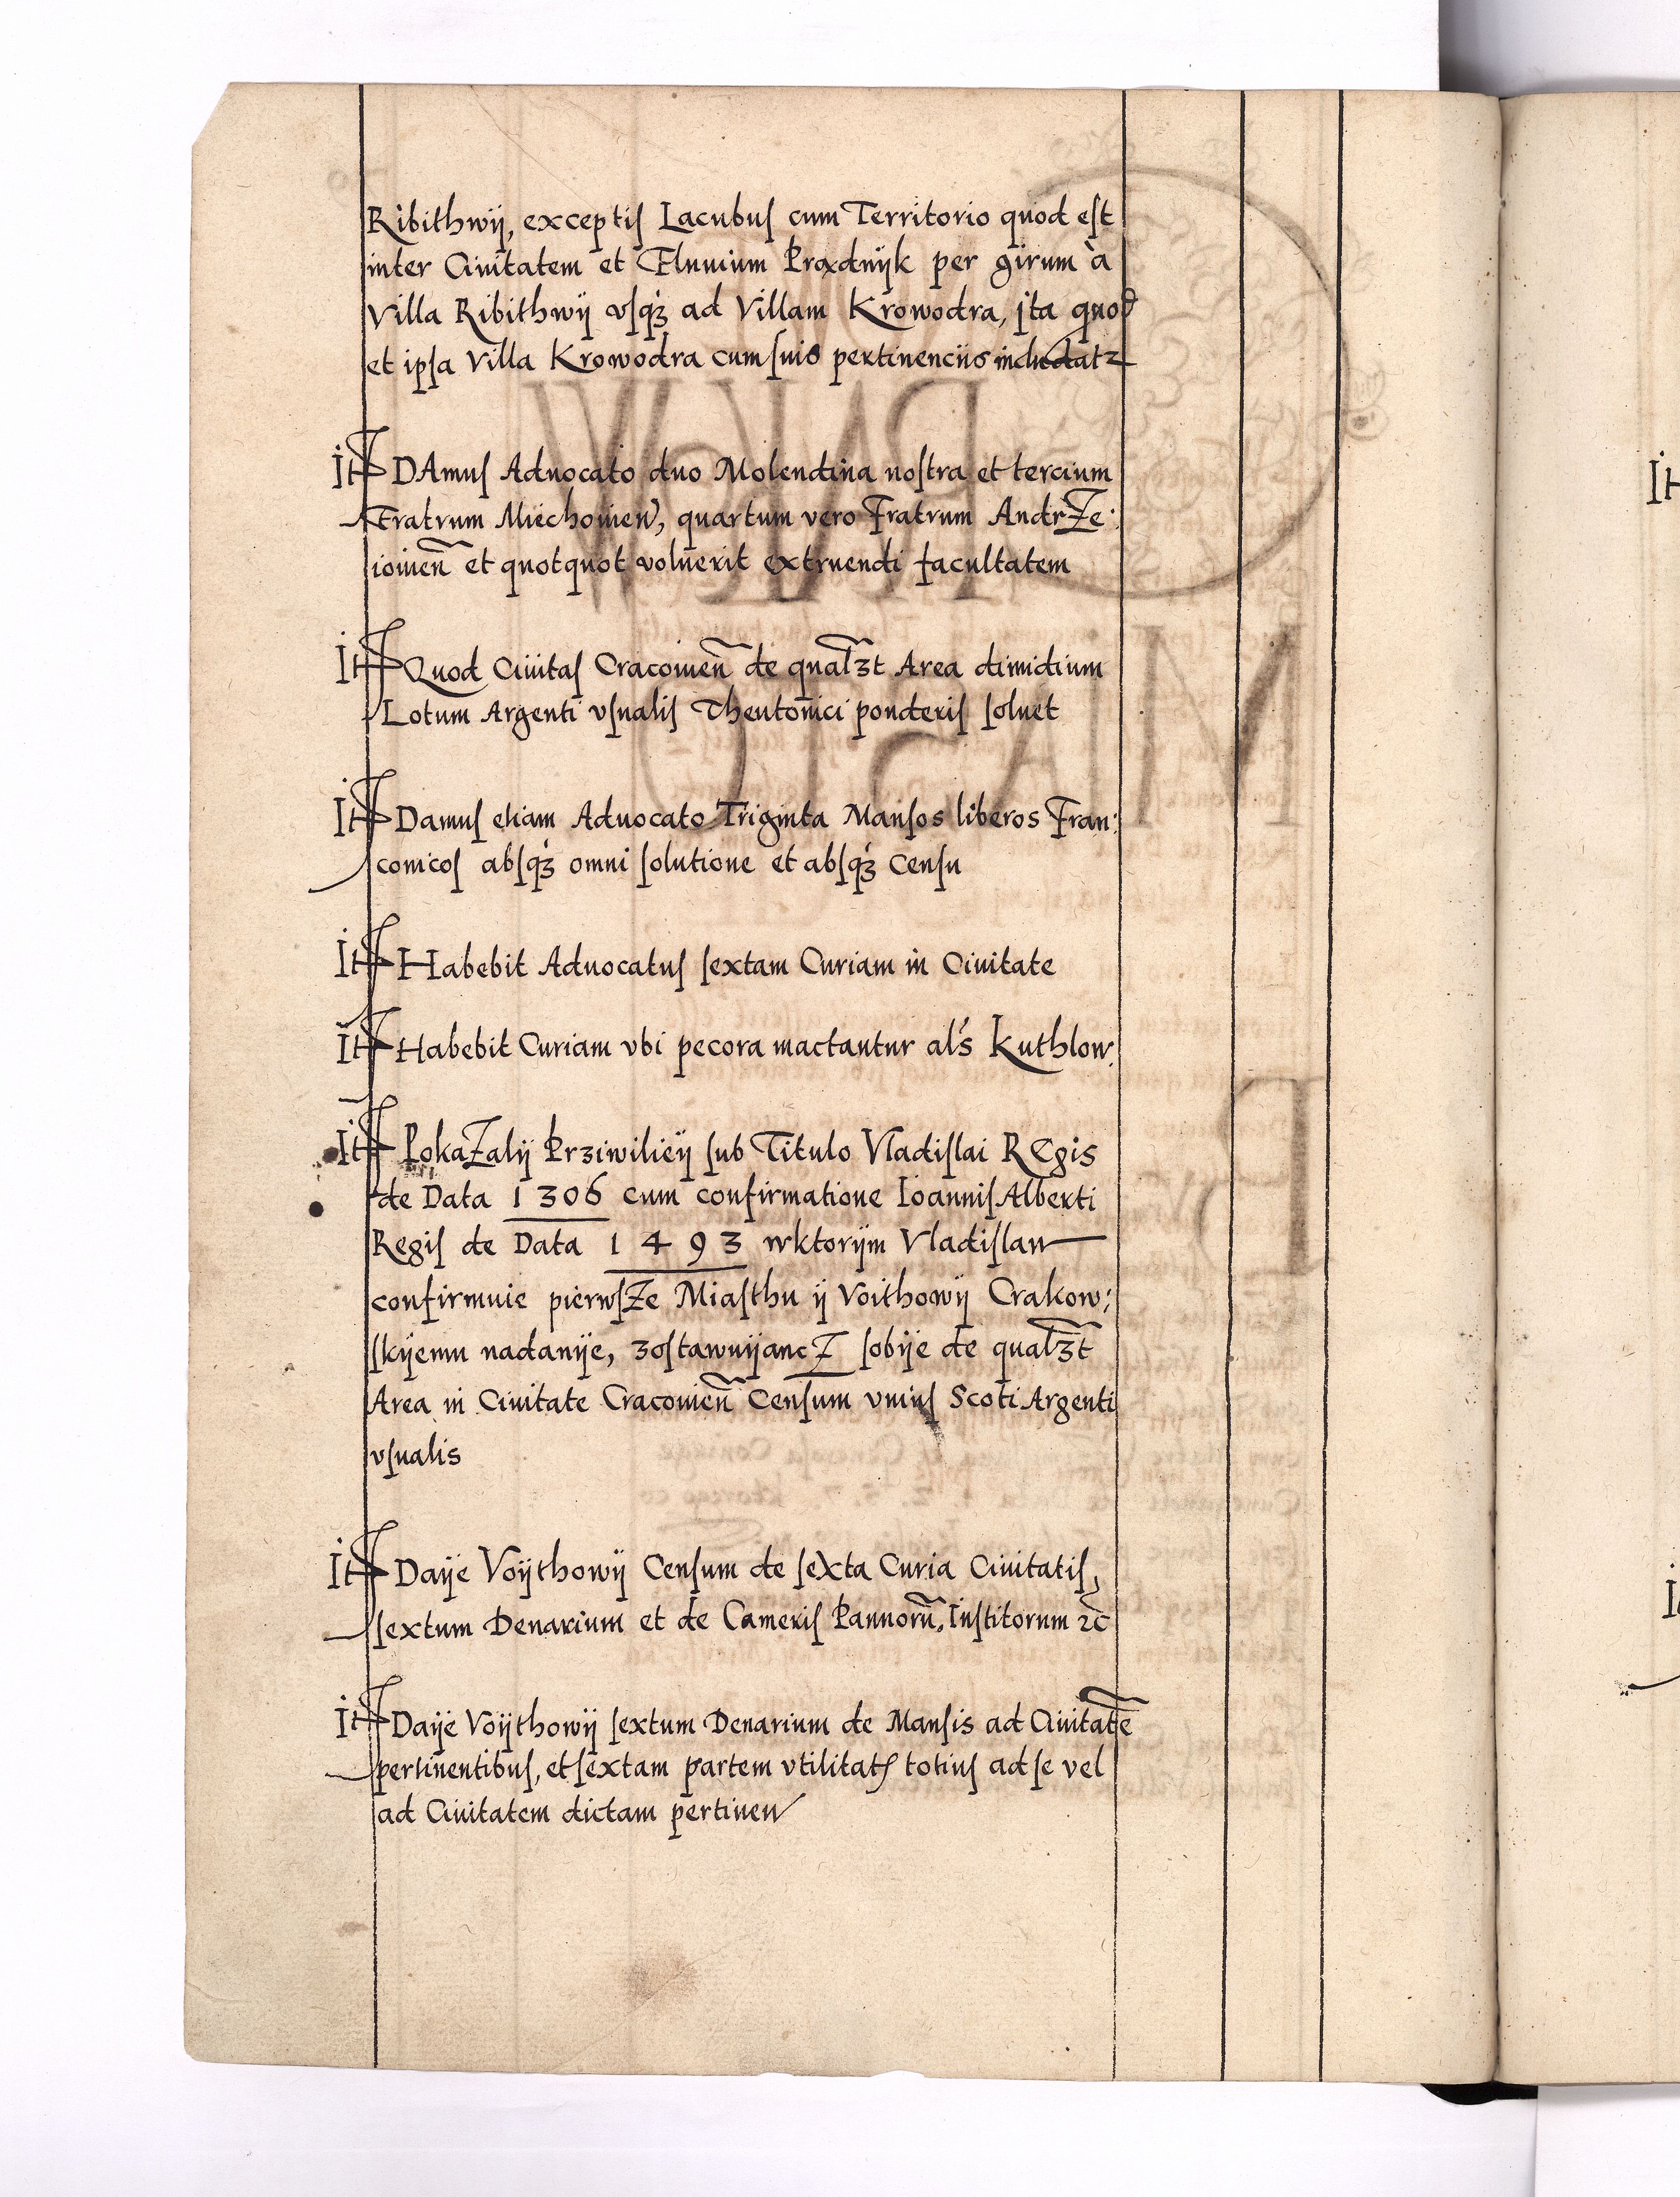 Ribithwÿ, exceptiſ Lacubuſ cum Territorio quod eſt
inter Ciuitatem et Fluuium Prądnÿk per girum à
Villa Ribithwÿ vſqꝫ ad Villam Krowodra, jta quod
et ipſa Villa Krowodra cum ſuis pertinenciis includatꝛ
It DAmuſ Aduocato duo Molendina noſtra et tercium
Fratrum Miechouien, quartum vero Fratrum AndrZe:
iouien̄ et quotquot voluerit extruendi facultatem
It Quod Ciuitaſ Cracouien̄ de qualꝫt Area dimidium
Lotum Argenti vſualiſ Theutonici ponderiſ ſoluet
It Damuſ etiam Aduocato Triginta Manſos liberos Fran:
conicoſ abſqꝫ omni ſolutione et abſqꝫ Cenſu
It Habebit Aduocatuſ ſextam Curiam in Ciuitate
It Habebit Curiam vbi pecora mactantur alś Kuthlow
It PokaZalÿ Prꝫiwilieÿ ſub Titulo Vladiſlai REgis
de Data 1306 cum confirmatione Ioanniſ Alberti
Regiſ de Data 1493 wktorÿm Vladiſlaw
confirmuie pierwſZe Miaſthu ÿ Voithowÿ Crakow:
ſkÿemu nadanÿe, ꝫoſtawuÿancZ ſobÿe de qualꝫt
Area in Ciuitate Cracouien̄ Cenſum vniuſ Scoti Argenti
vſualis
It Daÿe Voÿthowÿ Cenſum de ſexta Curia Ciuitatiſ,
ſextum Denarium et de Cameriſ Pannorū, Inſtitorum ⁊c̄
It Daÿe Voÿthowÿ ſextum Denarium de Manſis ad Ciuitatē
pertinentibuſ, et ſextam partem vtilitatꝭ totiuſ ad ſe vel
ad Ciuitatem dictam pertinen